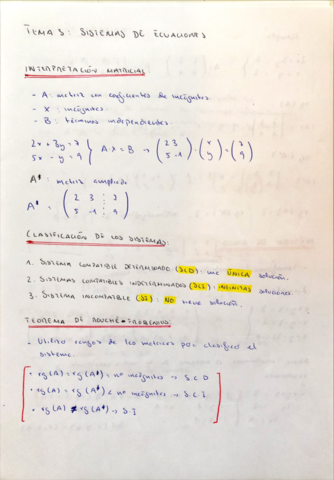 TEMA 3: SISTEMAS DE ECUACIONES
INTERPRETACIÓN MATRICIAL
- A: matriz con coeficientes de incógnitas.
- X: incógnitas.
- B: términos independientes.
2x + 3y = 7 } A·X = B → (2 3) · (x) = (7)
5x - y = 9 (5 -1) (y) (9)
A*: matriz ampliada
A* = (2 3 ⋮ 7)
(5 -1 ⋮ 9)
CLASIFICACIÓN DE LOS SISTEMAS:
1. SISTEMA COMPATIBLE DETERMINADO (SCD): una ÚNICA solución.
2. SISTEMAS COMPATIBLES INDETERMINADOS (SCI): INFINITAS soluciones.
3. SISTEMA INCOMPATIBLE (SI): NO tiene solución.
TEOREMA DE ROUCHÉ-FROBENIUS:
- Utilizo rangos de las matrices para clasificar el
sistema.
• rg(A) = rg(A*) = nº incógnitas → S.C.D
• rg(A) = rg(A*) < nº incógnitas → S.C.I
• rg(A) ≠ rg(A*) → S.I